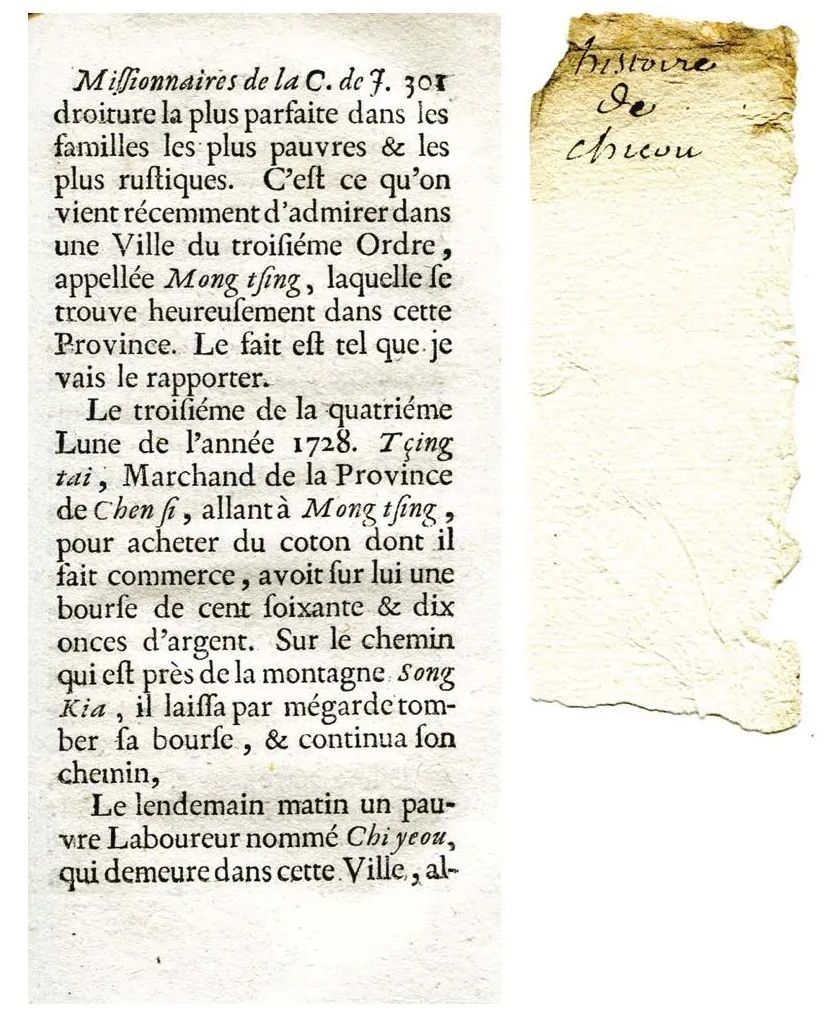 Miſſionnaires de la C. de J. 301
droiture la plus parfaite dans les
familles les plus pauvres & les
plus ruſtiques. C'eſt ce qu'on
vient récemment d'admirer dans
une Ville du troiſiéme Ordre,
appellée Mong tſing, laquelle ſe
trouve heureuſement dans cette
Province. Le fait eſt tel que je
vais le rapporter.
Le troiſiéme de la quatriéme
Lune de l'année 1728. Tçing
tai, Marchand de la Province
de Chen ſi, allant à Mong tſing,
pour acheter du coton dont il
fait commerce, avoit ſur lui une
bourſe de cent ſoixante & dix
onces d'argent. Sur le chemin
qui eſt près de la montagne Song
Kia, il laiſſa par mégarde tom-
ber ſa bourſe, & continua ſon
chemin,
Le lendemain matin un pau-
vre Laboureur nommé Chi yeou,
qui demeure dans cette Ville, al-
histoire
de
chicou